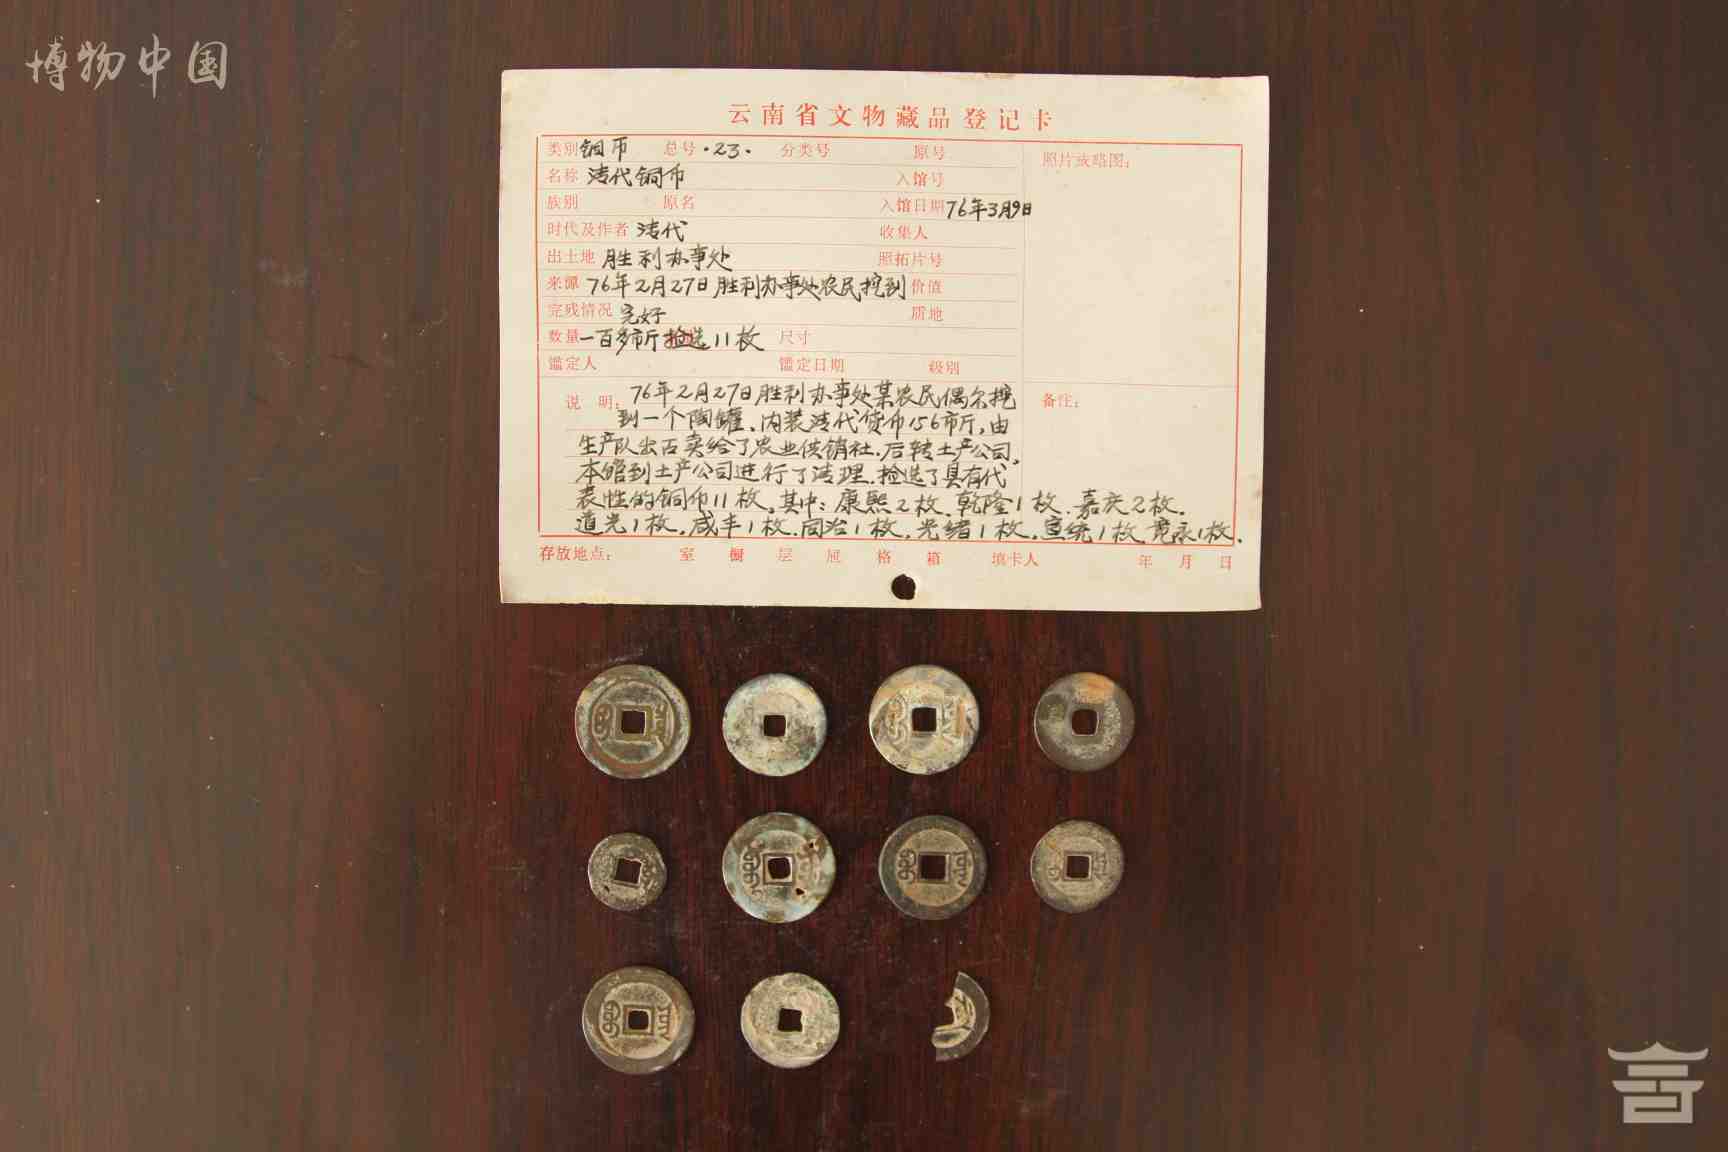 博物中国
云南省文物藏品登记卡
类别 铜币 总号 ·23· 分类号 原号 照片或略图:
名称 清代铜币 入馆号
族别 原名 入馆日期 76年3月9日
时代及作者 清代 收集人
出土地 胜利办事处 照拓片号
来源 76年2月27日胜利办事处农民挖到 价值
完残情况 完好 质地
数量 一百多市斤 捡选11枚 尺寸
鑑定人 鑑定日期 级别
说明: 76年2月27日胜利办事处某农民偶尔挖 备注:
到一个陶罐、内装清代货币156市斤,由
生产队出面卖给了农业供销社.后转土产公司。
本馆到土产公司进行了清理.捡选了具有代
表性的铜币11枚。其中:康熙2枚、乾隆1枚、嘉庆2枚.
道光1枚.咸丰1枚.同治1枚.光绪1枚.宣统1枚.宽永1枚.
存放地点: 室 橱 层 屉 格 箱 填卡人 年 月 日